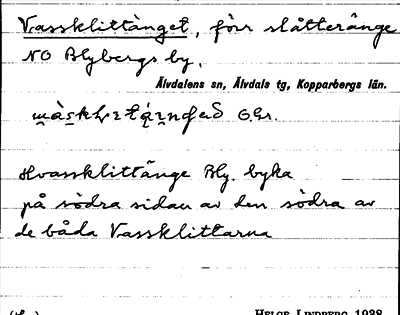 Vassklittänget, förr slåtteränge
NO Blybergs by.
Älvdalens sn, Älvdals tg, Kopparbergs län.
Hvassklittänge Bly. byka
på södra sidan av den södra av
de båda Vassklittarna
HELGE LINDBERG 1938